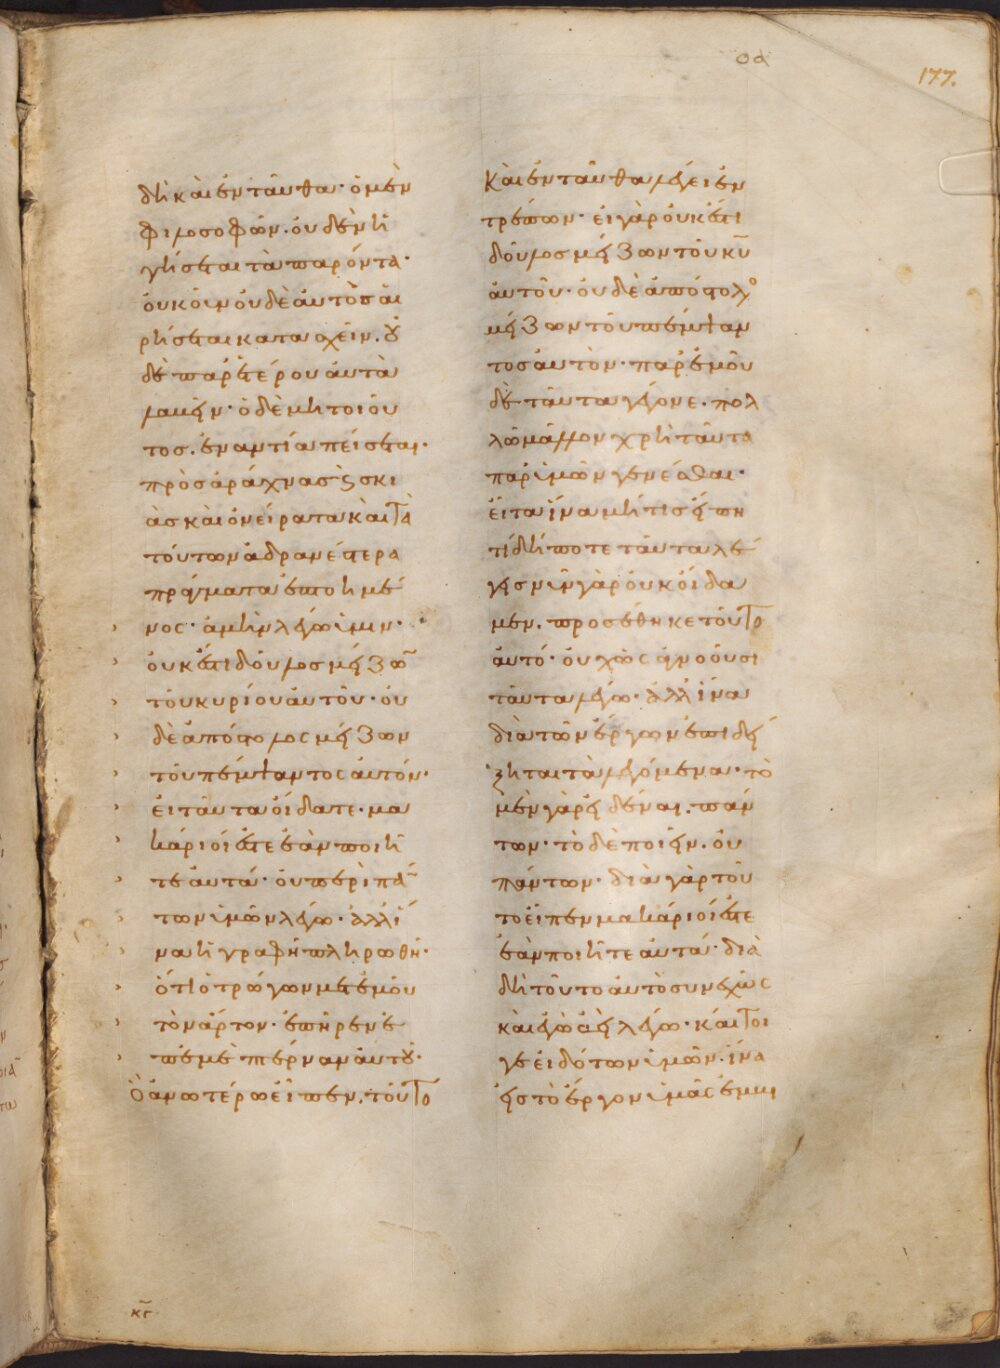 οα
177.
δὴ καὶ ἐνταῦθα· ὁ μὲν
φιλοσοφῶν. οὐδὲν ἡ
γήσεται τὰ παρόντα·
οὐκοῦν οὐδὲ αὐτὸς αἱ
ρήσεται κατασχεῖν. οὐ
δὲ παρ' ἑτέρου αὐτὰ
λαβεῖν· ὁ δὲ μὴ τοιοῦ
τος. ἐναντία πείσεται·
πρὸς ἀράχνας ϗ σκι
ὰς καὶ ὀνείρατα καὶ τὰ
τούτων ἀδρανέστερα
πράγματα ἐπτοημέ
νος· ἀμὴν λέγω ὑμιν·
οὐκ ἔστι δοῦλος μείζω̄
τοῦ κυρίου αὐτοῦ· οὐ
δὲ ἀπόστολος μείζων
τοῦ πέμψαντος αὐτόν·
εἰ ταῦτα οἴδατε. μα
κάριοί ἐστε ἐὰν ποιῆ
τε αὐτά· οὐ περὶ πά̄
των ὑμῶν λέγω· ἀλλ' ἵ
να ἡ γραφὴ πληρωθῆ·
ὅτι ὁ τρώγων μετ' ἐμοῦ
τὸν ἄρτον· ἐπῆρεν ἐ
π' ἐμὲ πτέρναν αὐτοῦ·
Ὃ ἀνωτέρω εἶπεν. τοῦτο
κγ
Καὶ ἐνταῦθα λέγει ἐν
τρέπων· εἰ γὰρ οὐκ ἔστι
δοῦλος μείζων τοῦ κῡ
αὐτοῦ· οὐδὲ ἀπόστολο
μείζων τοῦ πέμψαν
τος αὐτὸν· παρ' ἐμοῦ
δὲ ταῦτα γέγονε. πολ
λῶ μᾶλλον χρὴ ταῦτα
παρ' ὑμῶν γενέσθαι·
εἶτα ἵνα μή τις εἴπη
τί δήποτε ταῦτα λέ
γεις νῦν γὰρ οὐκ οἴδα
μεν. προσέθηκε τοῦτο
αὐτό· οὐχ ὡς ἀγνοοῦσι
ταῦτα λέγω· ἀλλ' ἵνα
διὰ τῶν ἔργων ἐπιδεί
ξηται τὰ λεγόμενα· τὸ
μὲν γὰρ εἰδέναι. πάν
των· τὸ δὲ ποιεῖν. οὐ
πάντων· διὰ γὰρ τοῦ
το εἶπεν μακάριοί ἐστε
ἐὰν ποιῆτε αὐτά· διὰ
δὴ τοῦτο αὐτὸ συνεχῶς
καὶ ἐγὼ ἀεὶ λέγω· καίτοι
γε εἰδότων ὑμῶν. ἵνα
εἰς τὸ ἔργον ὑμᾶς ἐμβι